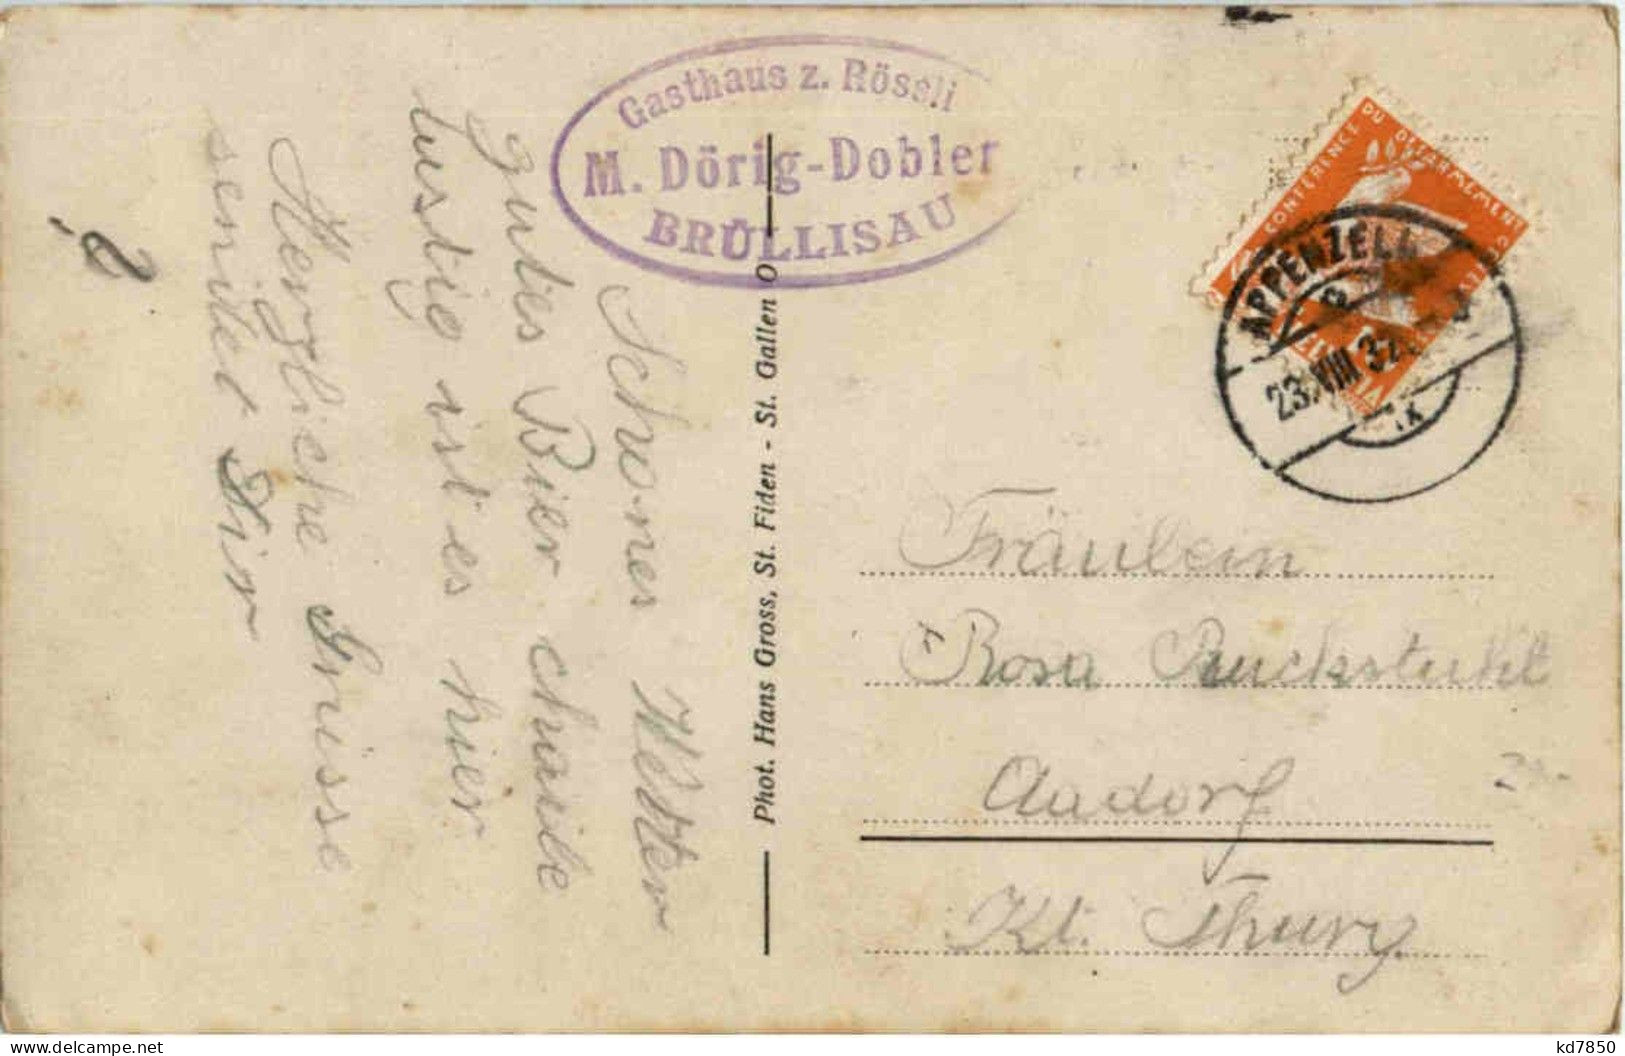 Gasthaus z. Rössli
M. Dörig-Dobler
BRÜLLISAU
CONFERENCE DU DESARMEMENT
APPENZELL
23.VIII 32
Schönes Wetter
gutes Bier chaibe
lustig ist es hier
Herzliche Grüsse
sendet Dir
Phot. Hans Gross, St. Fiden - St. Gallen O
Fräulein
Rosa Ruckstuhl
Aadorf
Kt. Thurg
kd7850